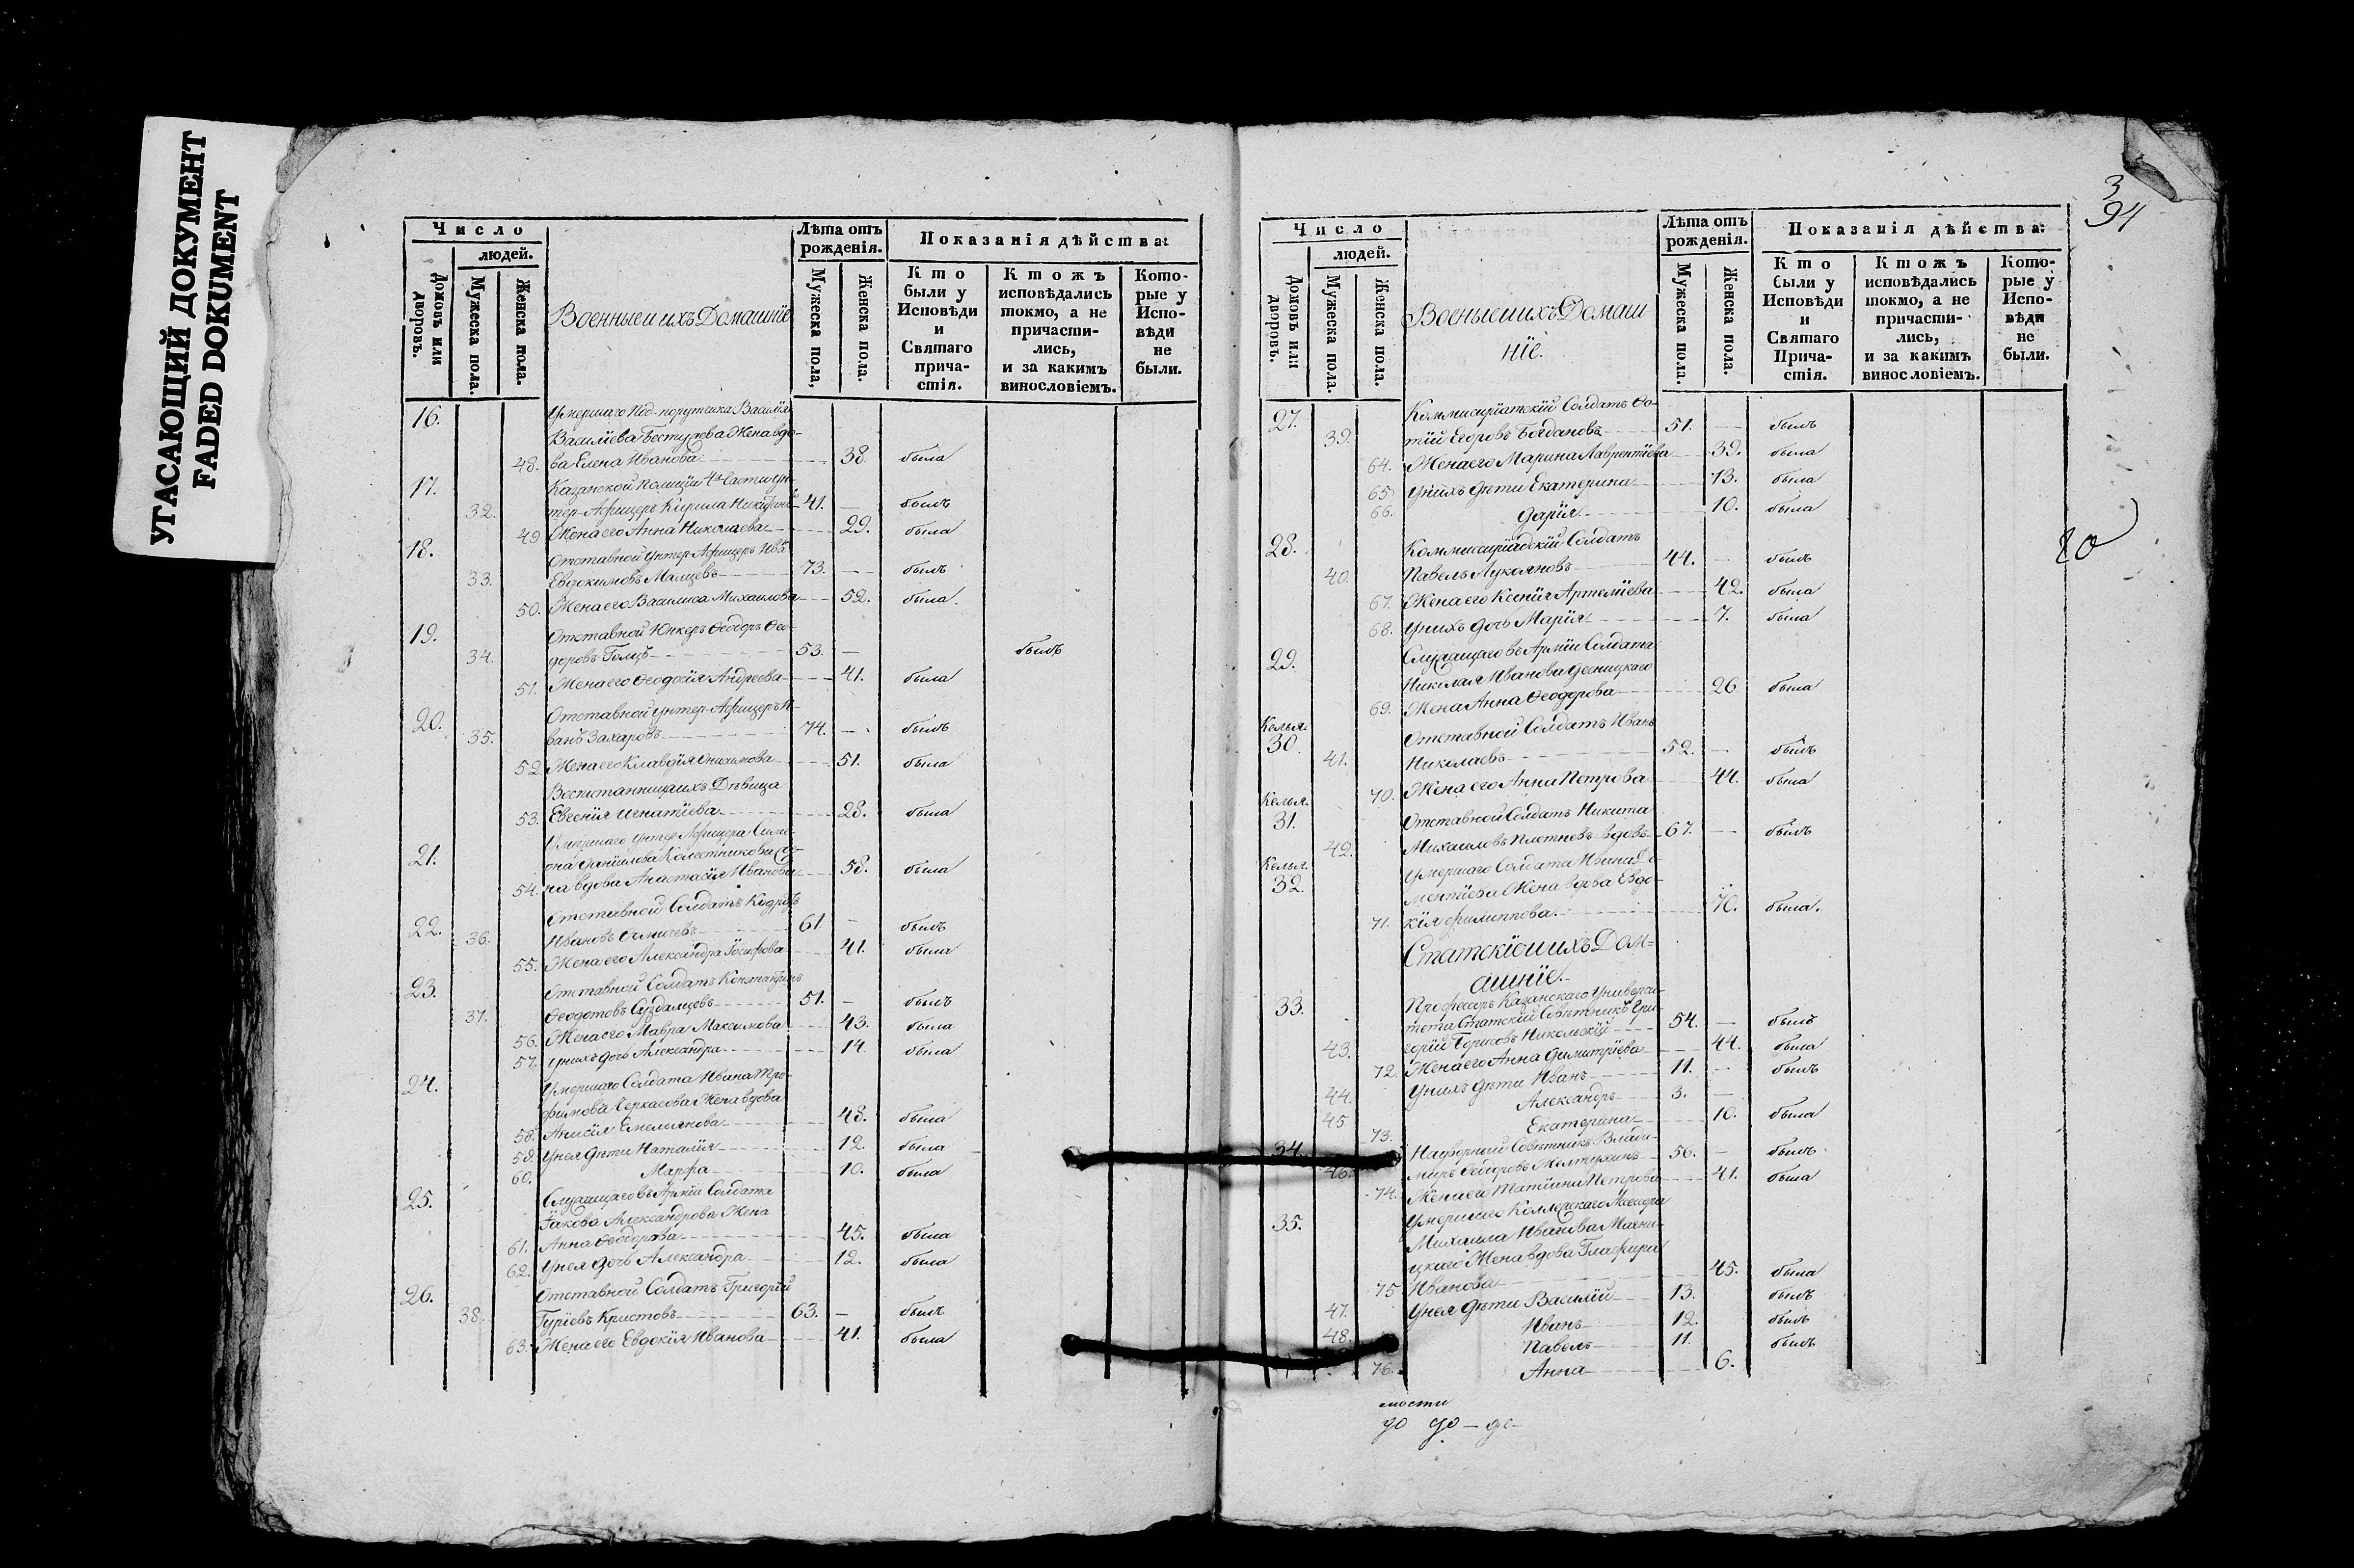 УГАСАЮЩИЙ ДОКУМЕНТ
FADED DOKUMENT
Число
людей.
Домовъ или дворовъ.
Мужеска пола.
Женска пола.
Военные и ихъ Домашніе
Лѣта отъ рожденія.
Мужеска пола,
Женска пола.
Показанія дѣйства:
Кто были у Исповѣди и Святаго прича-стія.
Ктожъ исповѣдались токмо, а не причасти-лись, и за какимъ винословіемъ.
Кото-рые у Испо-вѣди не были.
16. Умершаго Под-порутчика Василія
Василіева Бестужева Жена вдо-
48. ва Елена Иванова 38 была
17. Казанской Полиціи 4й Части Ун-
32. тер-Афицеръ Кирила 41. — былъ
49 Жена его Анна Николаева 29. была
18. Отставной Унтер-Афицеръ
33. Евдокимовъ Малцевъ 73. — былъ
50. Жена его Василиса Михаилова 52. была
19. Отставной Юнкеръ Ѳеодоръ Ѳео-
34. доровъ Голцъ 53. — былъ
51. Жена его Ѳеодосія Андреева 41. была
20. Отставной Унтер-Афицеръ И-
35. ванъ Захаровъ 74. — былъ
52 Жена его Клавдія Онисимова 51. была
Воспитанница ихъ Дѣвица
53. Евгенія Игнатіева 28. была
Умершаго Унтер-Афицера Симе-
21. она Даніилова Колестникова Же-
54. на вдова Анастасія Иванова 58. была
22. Отставной Солдатъ
36. Ивановъ 61 — былъ
55. Жена его Александра Іосифова 41. была
23. Отставной Солдатъ Константинъ
37. Ѳеодотовъ Суздалцевъ 51. — былъ
56. Жена его Мавра Максимова 43. была
57. У нихъ дочь Александра 14 была
24. Умершаго Солдата Ивана Тро-
фимова Черкасова Жена вдова
58. Анисія Емельянова 48. была
59. У нея Дѣти Наталія 12. была
60. Марфа 10. была
25. Служащаго въ Арміи Солдата
Іакова Александрова Жена
61. Анна Ѳеодорова 45. была
62. У нея Дочь Александра 12. была
26. Отставной Солдатъ Григорій
38. Гуріевъ Кристовъ 63. — былъ
63. Жена его Евдокія Иванова 41. была
3
94
Число
людей.
Домовъ или дворовъ.
Мужеска пола.
Женска пола.
Военые и ихъ Домаш
ніе.
Лѣта отъ рожденія.
Мужеска пола.
Женска пола.
Показанія дѣйства:
Кто были у Исповѣди и Святаго Прича-стія.
Ктожъ исповѣдались токмо, а не причасти-лись, и за какимъ винословіемъ.
Кото-рые у Испо-вѣди не были.
27. Коммисаріатскій Солдатъ Ѳо-
39. тій Егоровъ Богдановъ 51. — былъ
64. Жена его Марина Лаврентіева 39. была
65 У нихъ Дѣти Екатерина 13. была
66. Дарія 10. была
28. Коммисаріадскій Солдатъ
40. Павелъ Лукояновъ 44. — былъ
67. Жена его Ксенія Артеміева 42. была
68. У нихъ дочь Марія 7. была
29. Служащаго въ Арміи Солдата
Николая Иванова Десницкаго
69. Жена Анна Ѳеодорова 26 была
Келья.
30. Отставной Солдатъ Иванъ
41. Николаевъ 52. — былъ
70. Жена его Анна Петрова 44. была
Келья.
31. Отставной Солдатъ Никита
42. Михаиловъ Плотневъ вдовъ 67. — былъ
Келья.
32. Умершаго Солдата Ивана До-
ментіева Жена вдова Евдо-
71. кія Филиппова. 70. была.
Статскіе и ихъ Дом=
ашніе.
33. Профессоръ Казанскаго Универси-
тета Статскій Совѣтникъ Гри-
43. горій Борисовъ Никольскій 54. — былъ
72. Жена его Анна Димитріева 44. была
44. У нихъ Дѣти Иванъ 11. — былъ
45 Александръ 3. —
73. Екатерина 10. была
34. Надворный Совѣтникъ Влади-
46. миръ Ѳеодоровъ Желтухинъ 56. — былъ
74. Жена его Татіана Петрова 41. была
35. Умершаго Коллежскаго Ассесора
Михаила Иванова Магни-
цкаго Жена вдова Глафира
75 Иванова 45. была
47. У нея Дѣти Василій 13. былъ
48. Иванъ 12. былъ
Павелъ 11. былъ
76. Анна 6.
80
мости
до до — до